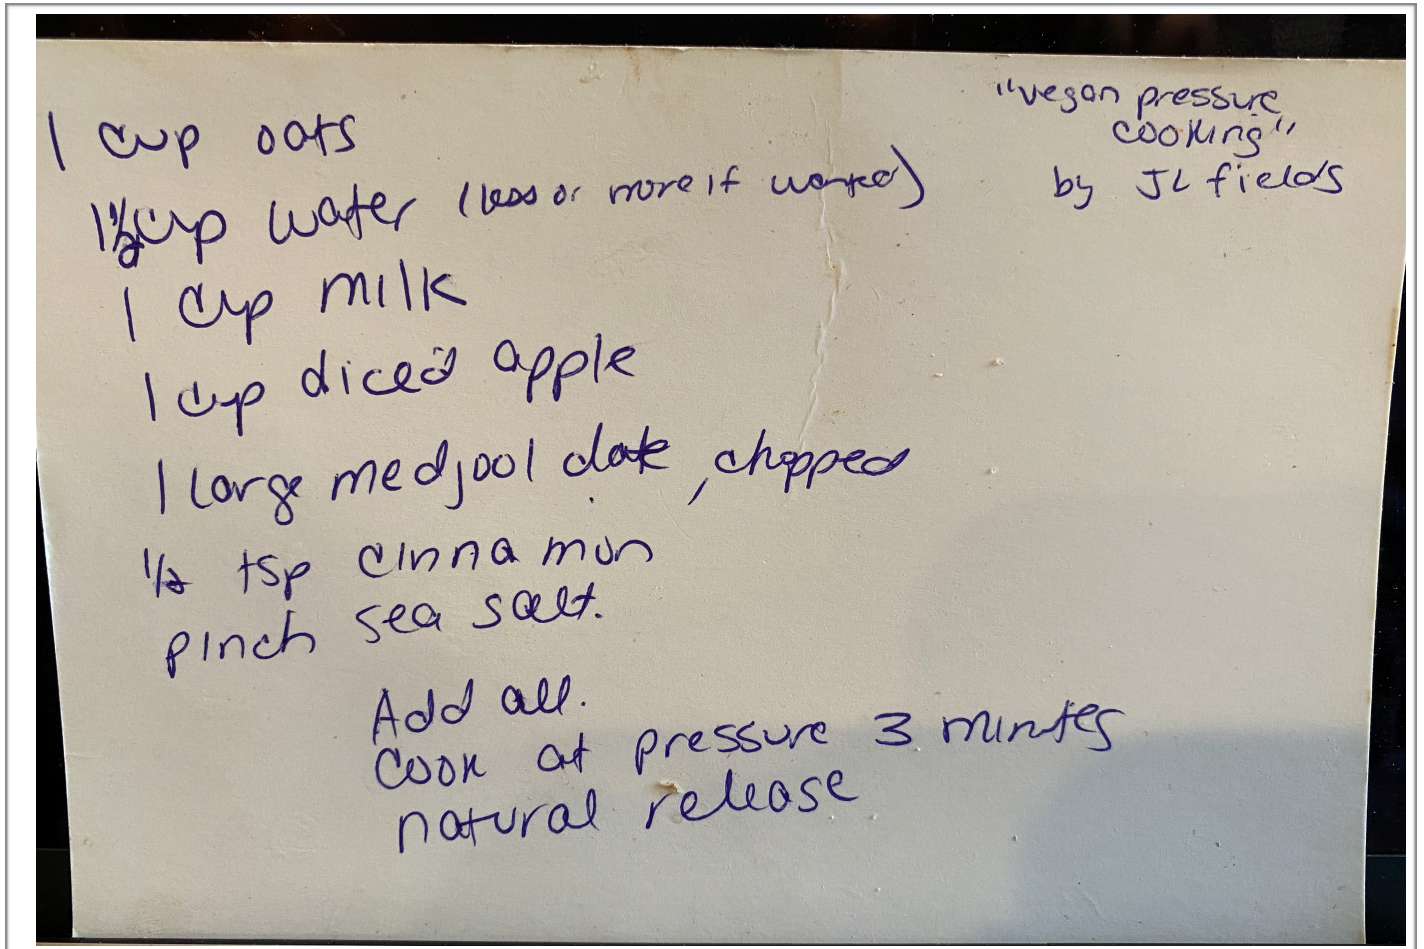 "vegan pressure
cooking"
by JL fields
1 cup oats
1½ cup water (less or more if wanted)
1 cup milk
1 cup diced apple
1 large medjool date, chopped
1/2 tsp cinnamon
pinch sea salt.
Add all.
Cook at pressure 3 minutes
natural release